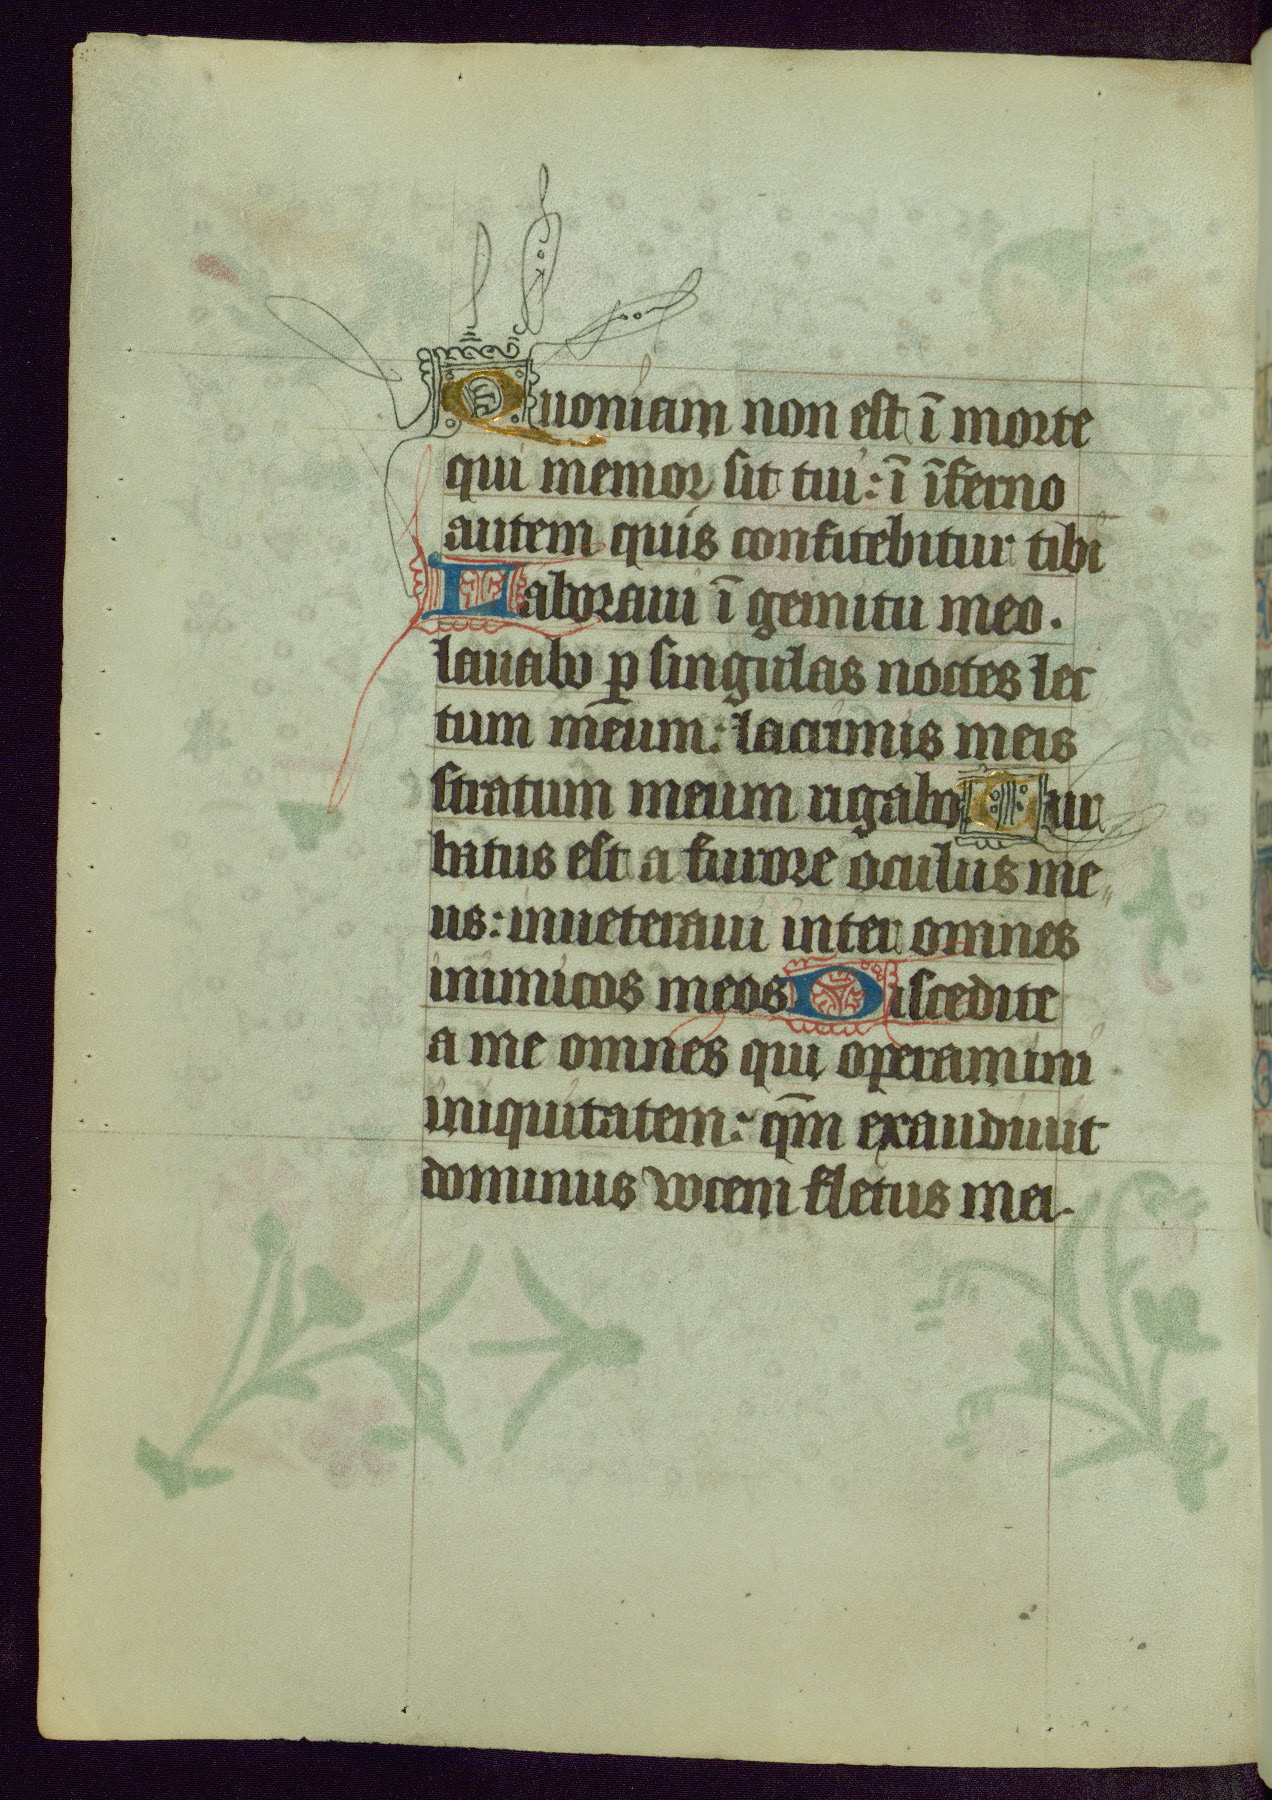 Quoniam non est ī morte
qui memor sit tui: ī īferno
autem quis confitebitur tibi
Laboraui ī gemitu meo.
lauabo ꝑ singulas noctes lec
tum meum: lacrimis meis
stratum meum rigabo Tur
bitus est a furore oculus me„
us: inueteraui inter omnes
inimicos meos Discedite
a me omnes qui operamini
iniquitatem: qm̄ exaudiuit
dominus vocem fletus mei.